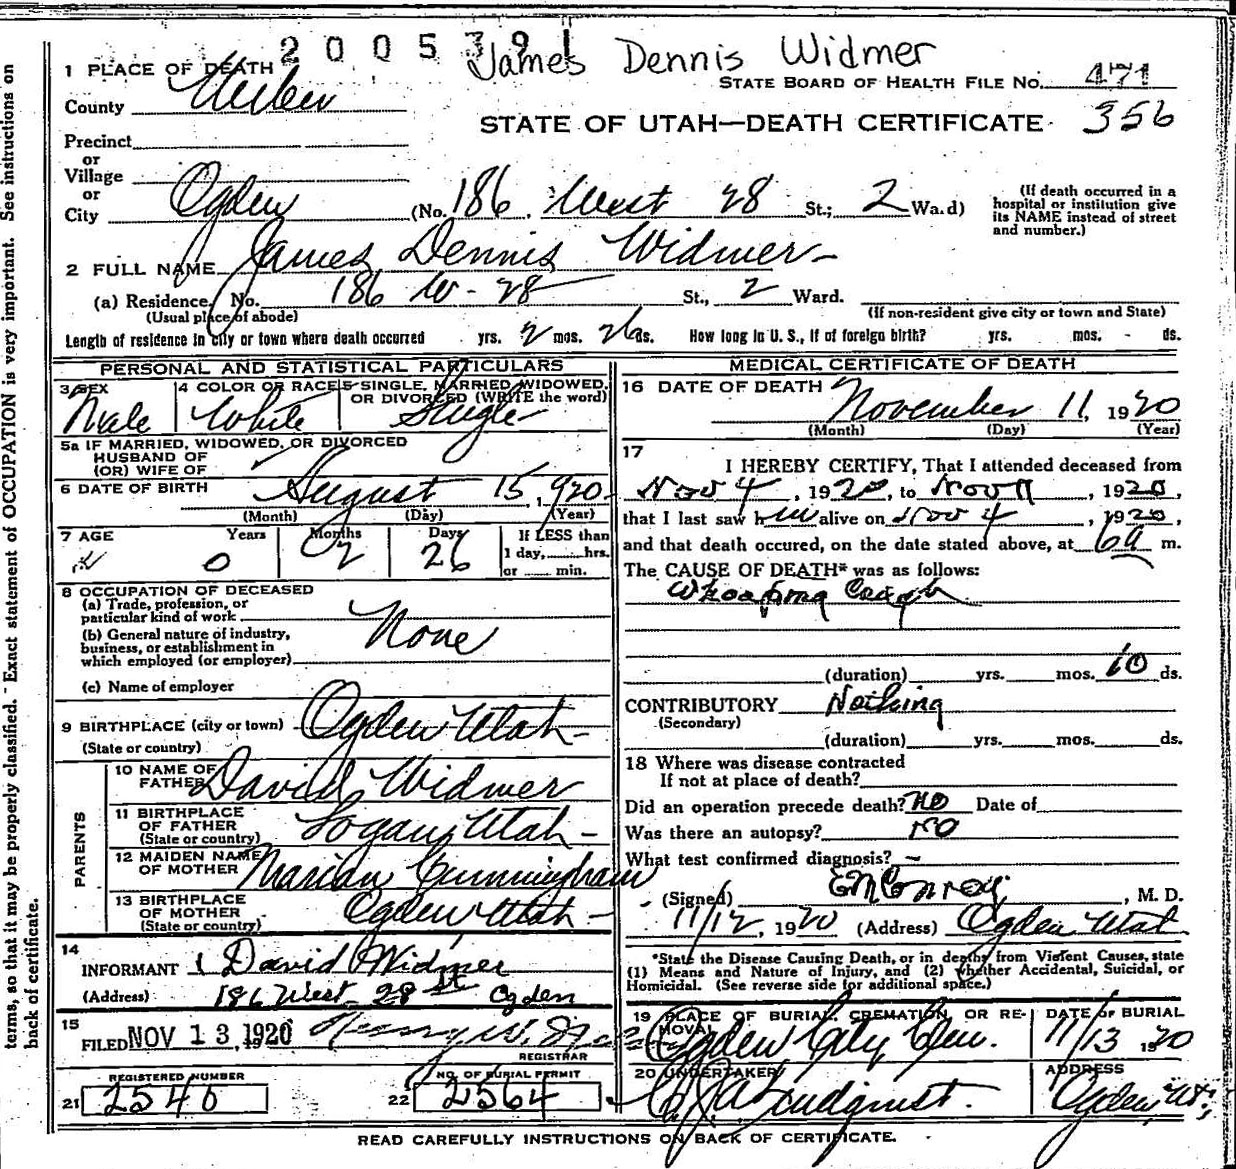 2005391
James Dennis Widmer
1 PLACE OF DEATH
STATE BOARD OF HEALTH FILE NO. 471
County Weber
STATE OF UTAH—DEATH CERTIFICATE 356
Precinct
or
Village
or
City Ogden (No. 186 West 28 St; 2 Wa.d)
(If death occurred in a hospital or institution give its NAME instead of street and number.)
2 FULL NAME James Dennis Widmer
(a) Residence, No. 186 W- 28 St., 2 Ward.
(Usual place of abode)
(If non-resident give city or town and State)
Length of residence in city or town where death occurred yrs. 2 mos. 26 ds. How long in U. S., if of foreign birth? yrs. mos. - ds.
PERSONAL AND STATISTICAL PARTICULARS
3 SEX Male
4 COLOR OR RACE White
5 SINGLE, MARRIED, WIDOWED, OR DIVORCED (WRITE the word) Single
5a IF MARRIED, WIDOWED, OR DIVORCED
HUSBAND OF
(OR) WIFE OF
6 DATE OF BIRTH August 15, 1920
(Month) (Day) (Year)
7 AGE Years Months Days If LESS than
0 2 26 1 day, hrs.
or min.
8 OCCUPATION OF DECEASED
(a) Trade, profession, or
particular kind of work
None
(b) General nature of industry,
business, or establishment in
which employed (or employer)
(c) Name of employer
9 BIRTHPLACE (city or town) Ogden Utah
(State or country)
PARENTS
10 NAME OF FATHER David Widmer
11 BIRTHPLACE OF FATHER Logan, Utah
(State or country)
12 MAIDEN NAME OF MOTHER Marian Cunningham
13 BIRTHPLACE OF MOTHER Ogden Utah
(State or country)
14
INFORMANT David Widmer
(Address) 186 West 28 st Ogden
15
FILED NOV 13 1920
REGISTRAR
REGISTERED NUMBER
21 2546
NO. OF BURIAL PERMIT
22 2564
MEDICAL CERTIFICATE OF DEATH
16 DATE OF DEATH November 11, 1920
(Month) (Day) (Year)
17
I HEREBY CERTIFY, That I attended deceased from
Nov 4, 1920, to Nov 11, 1920,
that I last saw him alive on Nov 4, 1920,
and that death occured, on the date stated above, at 6a m.
The CAUSE OF DEATH* was as follows:
Whooping Cough
(duration) yrs. mos. 10 ds.
CONTRIBUTORY Nothing
(Secondary)
(duration) yrs. mos. ds.
18 Where was disease contracted
If not at place of death?
Did an operation precede death? no Date of
Was there an autopsy? no
What test confirmed diagnosis? —
(Signed) EM Conroy, M. D.
11/12, 1920 (Address) Ogden Utah
*State the Disease Causing Death, or in deaths from Violent Causes, state
(1) Means and Nature of Injury, and (2) whether Accidental, Suicidal, or
Homicidal. (See reverse side for additional space.)
19 PLACE OF BURIAL, CREMATION, OR REMOVAL
Ogden City Cem.
DATE OF BURIAL
11/13 1920
20 UNDERTAKER
Lindquist.
ADDRESS
Ogden, Ut.
READ CAREFULLY INSTRUCTIONS ON BACK OF CERTIFICATE.
terms, so that it may be properly classified. Exact statement of OCCUPATION is very important. See instructions on
back of certificate.